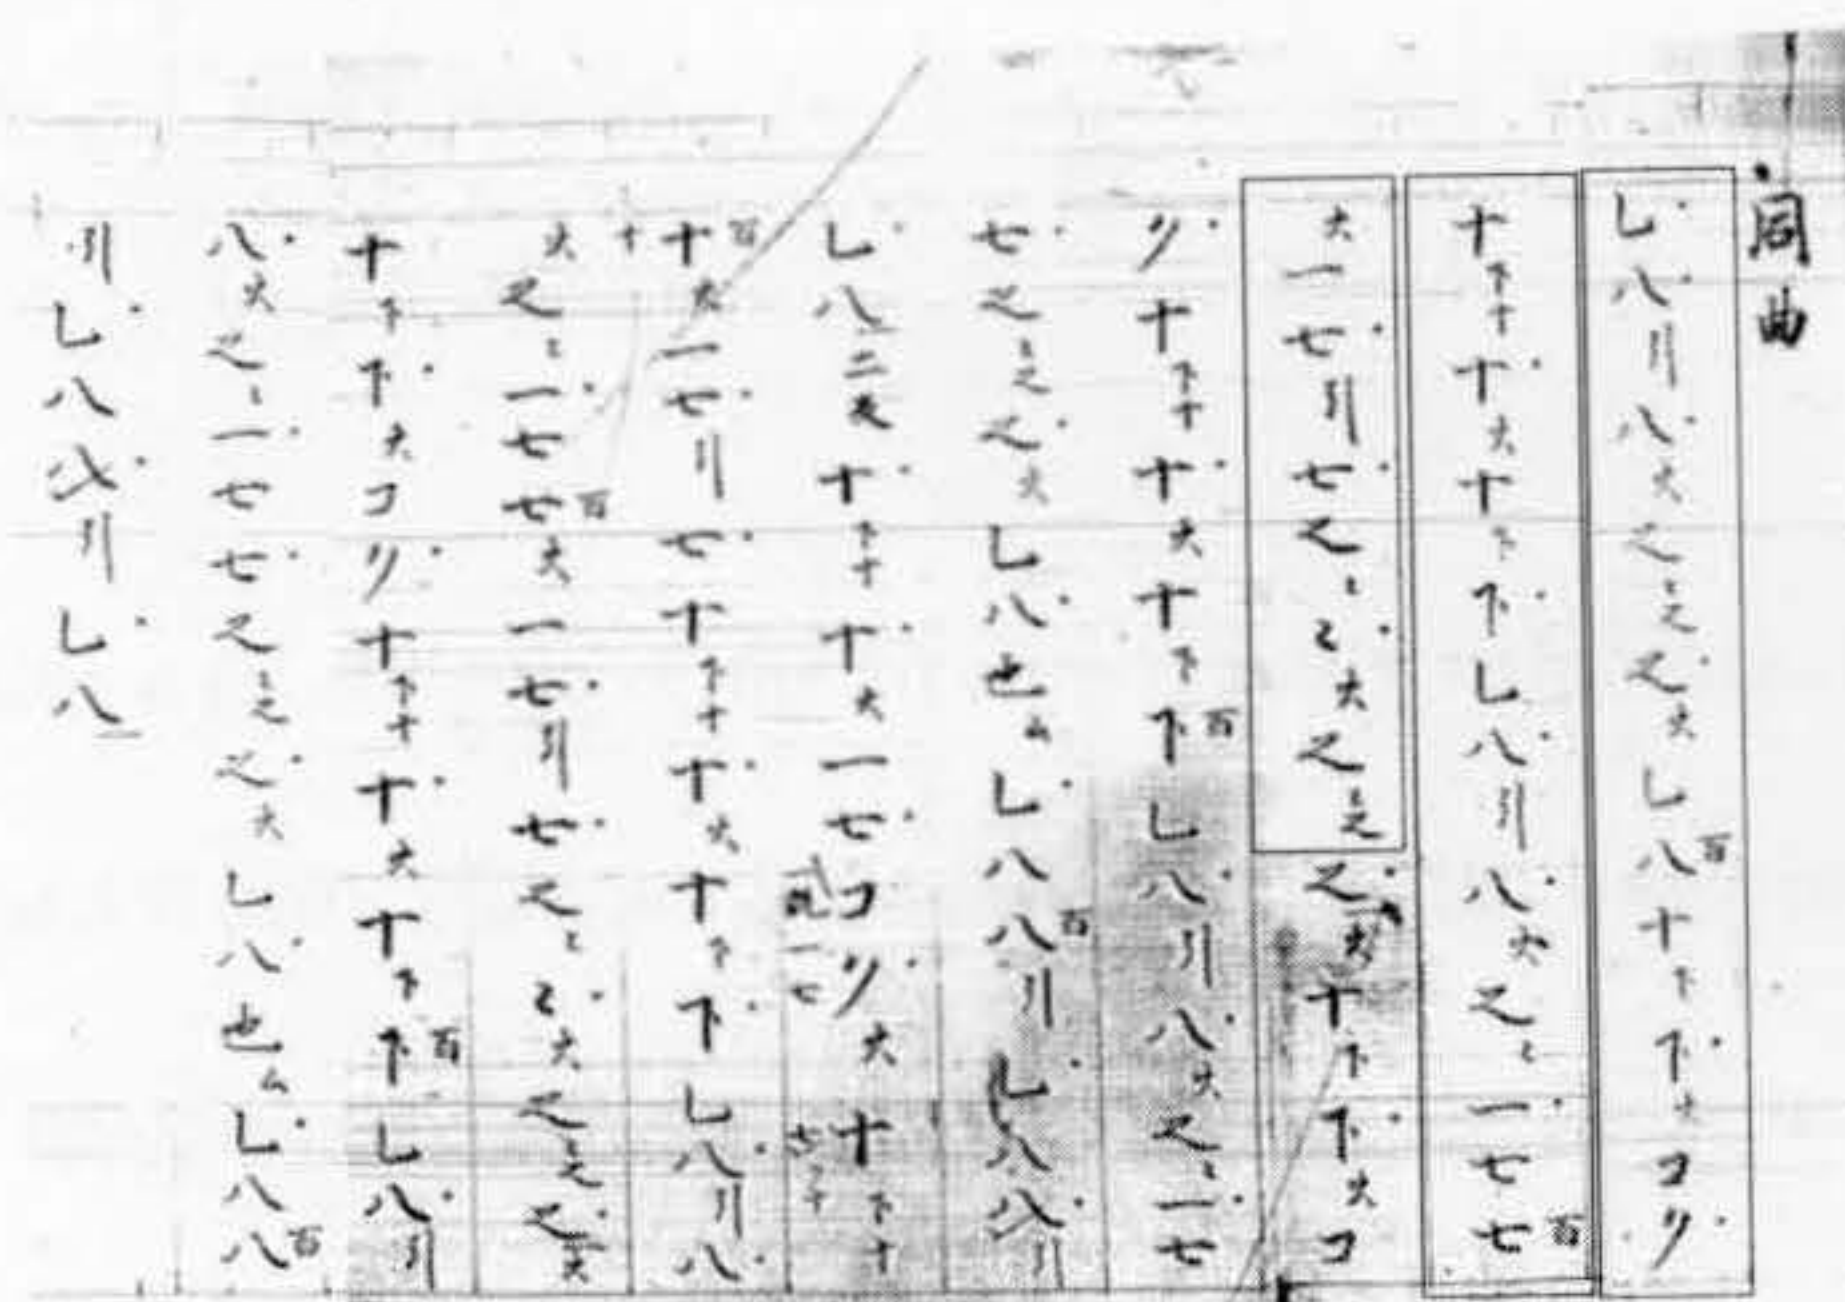 同曲
乚八引八火之〻之之火乚八百十下下火コリ
十下十十火十下下乚八引八火之〻一七七百
火一七引七之〻〻火之〻之之火十下下火コ
リ十下十十火十下下百乚八引八火之〻一七
七之〻之之火乚八也ム乚八八百引乚八八引
乚八二返十下十十火一七コリ火十下十
十百火一七引七十下十十火十下下乚八引八
火之〻一七七百火一七引七之〻〻火之〻之之火
十下下火コリ十下十十火十下下百乚八引
八火之〻一七七之〻之之火乚八也ム乚八八百
引乚八八引乚八